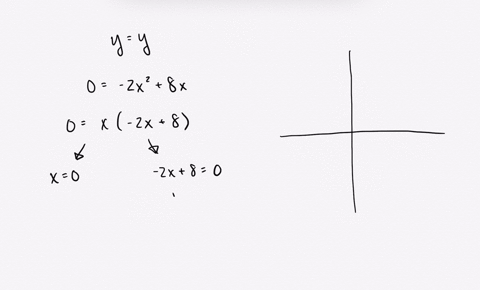 y = y
0 = -2x² + 8x
0 = x(-2x + 8)
x = 0
-2x + 8 = 0